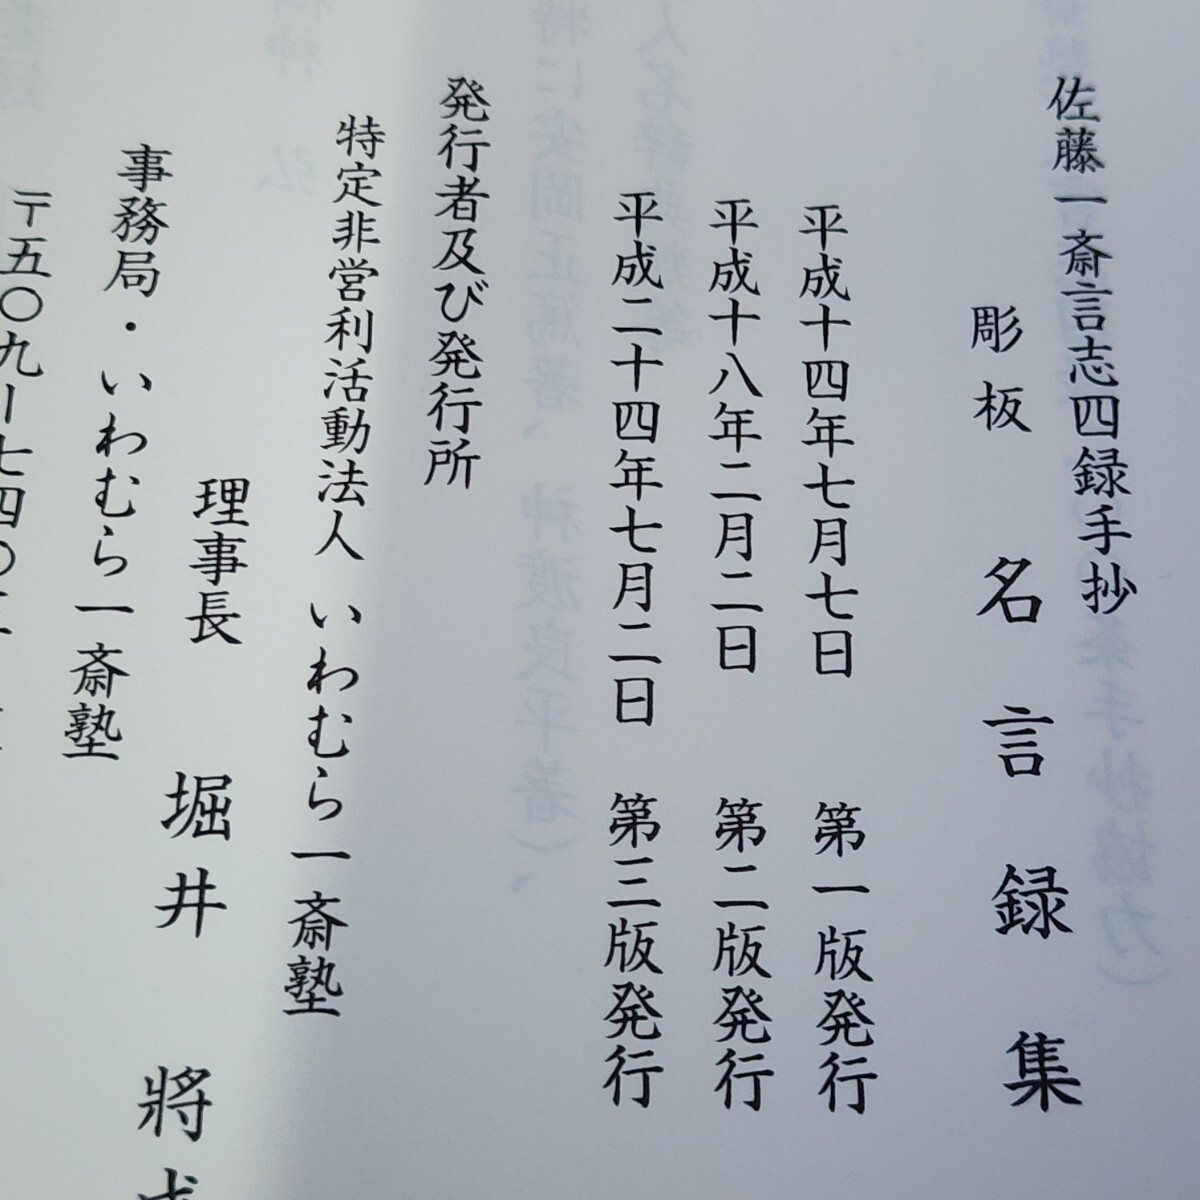 佐藤一斎言志四録手抄
彫板 名言録集
平成十四年七月七日 第一版発行
平成十八年二月二日 第二版発行
平成二十四年七月二日 第三版発行
発行者及び発行所
特定非営利活動法人 いわむら一斎塾
理事長 堀井 將
事務局・いわむら一斎塾
〒五〇九ー七四〇